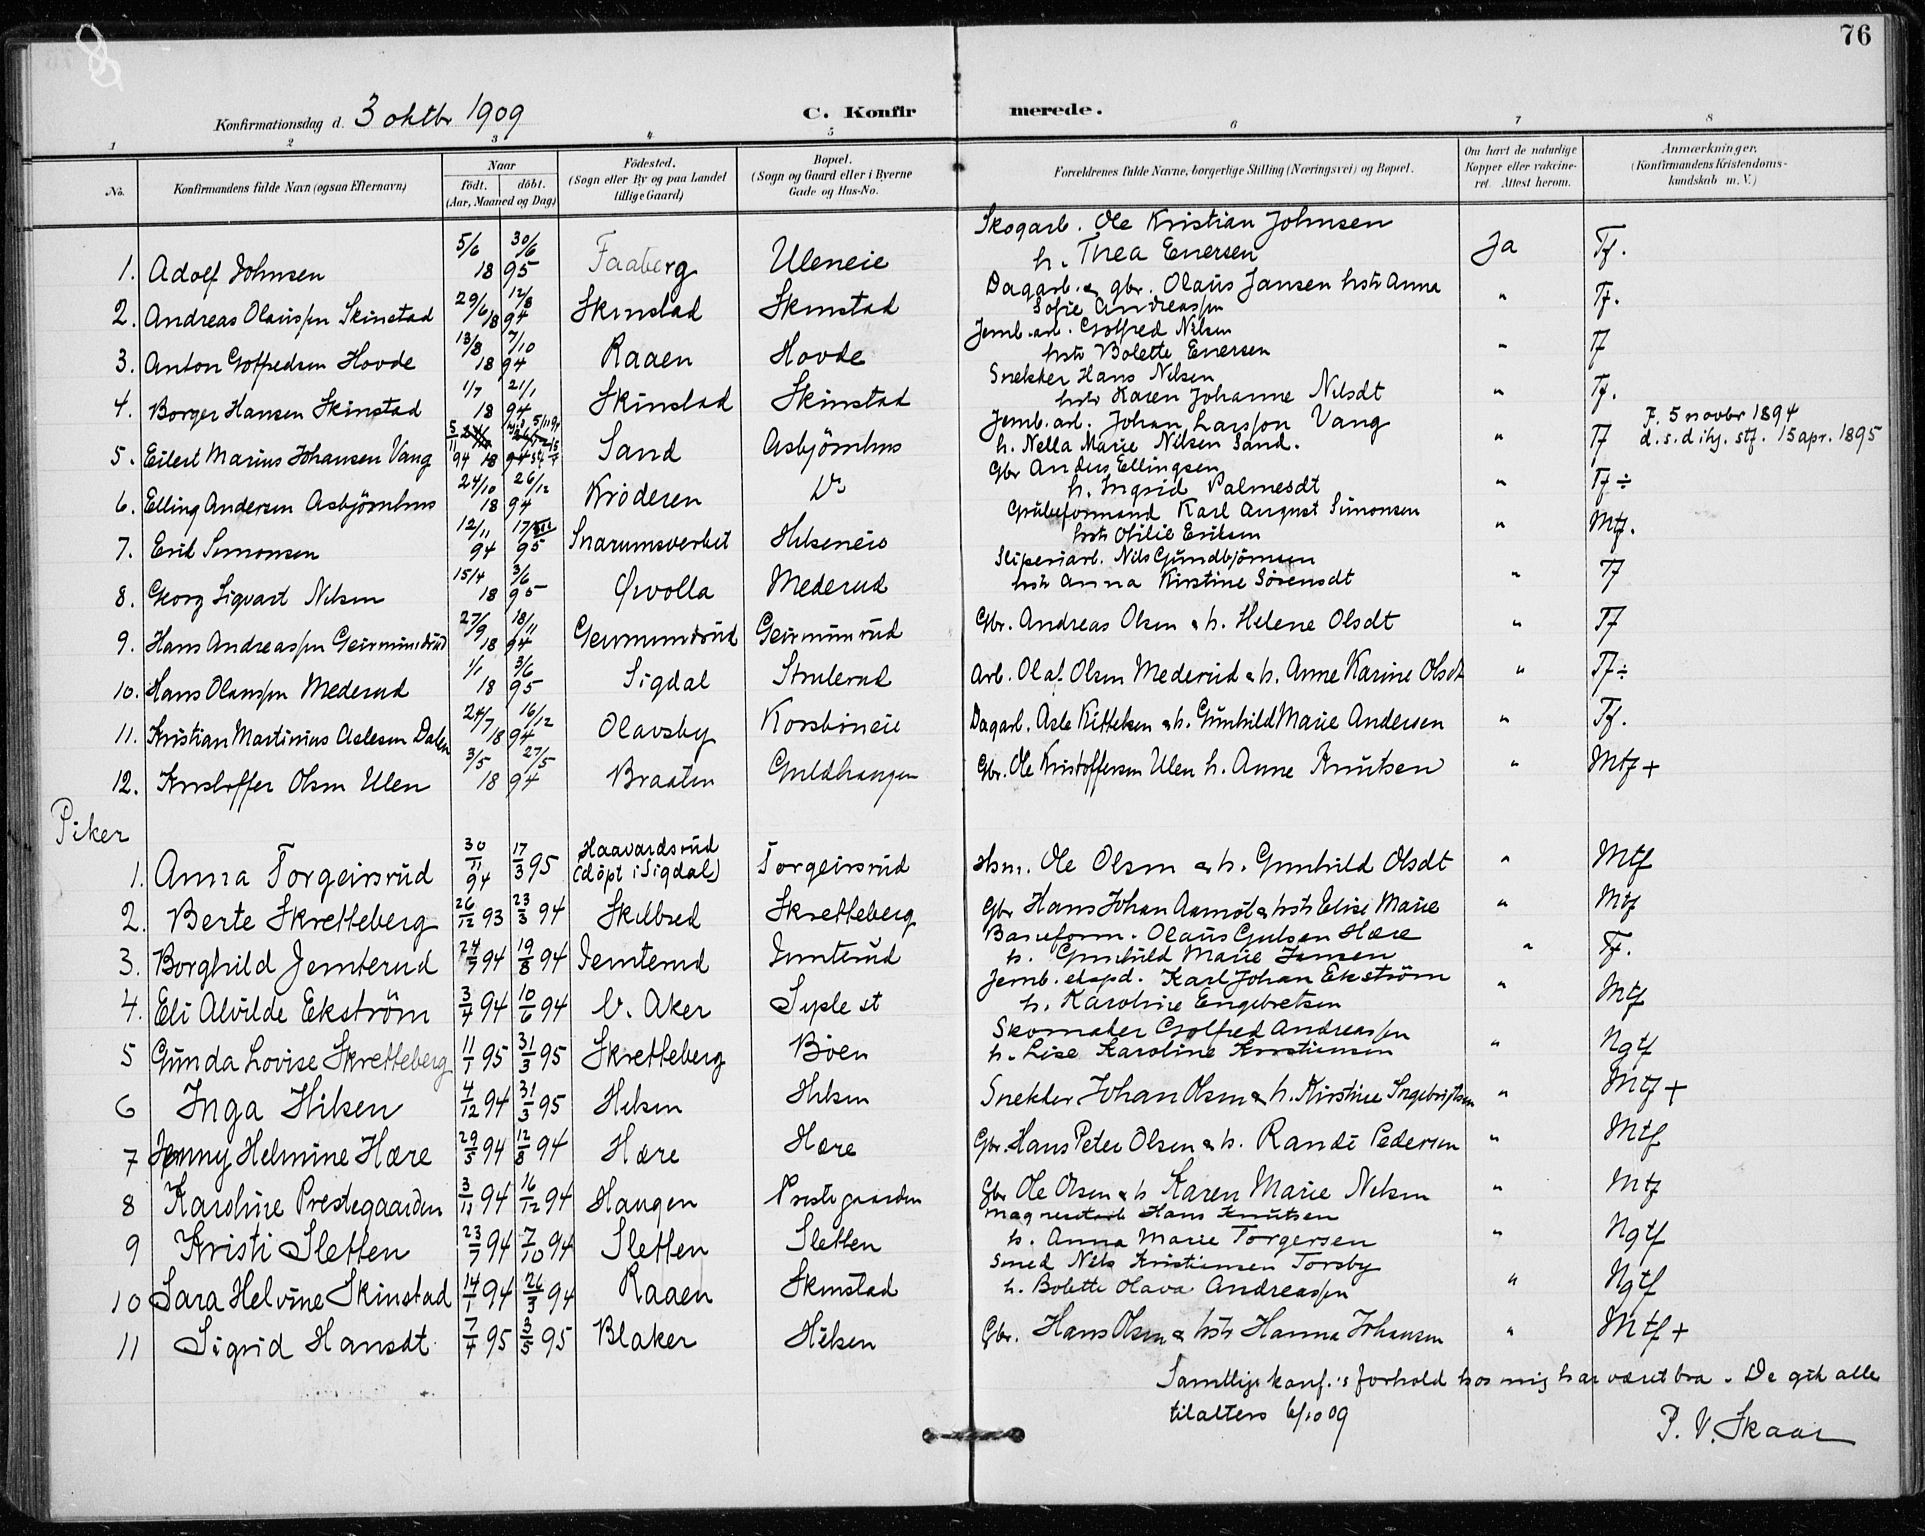 76
8
Konfirmationsdag d. 3 oktbr 1909 C. Konfirmerede.
1 2 3 4 5 6 7 8
No. Konfirmandens fulde Navn (ogsaa Efternavn) Naar födt. döbt. (Aar, Maaned og Dag) Födested. (Sogn eller By og paa Landet tillige Gaard) Bopæl. (Sogn og Gaard eller i Byerne Gade og Hus-No. Forældrenes fulde Navne, borgerlige Stilling (Næringsvei) og Bopæl. Om havt de naturlige Kopper eller vakcineret. Attest herom. Anmærkninger. (Konfirmandens Kristendomskundskab m. V.)
1. Adolf Johnsen 5/6 30/6 18 95 Faaberg Uleneie Skogarb. Ole Kristian Johnsen h. Thea Enersen Ja Tf.
2. Andreas Olaussen Skinstad 29/6 12/8 18 94 Skinstad Skinstad Dagarb. & gbr. Olaus Jansen hstr Anna Sofie Andreassen " Tf.
3. Anton Gotfredsen Hovde 13/8 7/10 18 94 Raaen Hovde Jernb. arb. Gotfred Nilsen hstr Bolette Enersen " Tf
4. Borger Hansen Skinstad 1/7 21/1 18 94 Skinstad Skinstad Snekker Hans Nilsen hstr Karen Johanne Nilsdt " Tf.
5. Eilert Marius Johansen Vang 5/11 94 18 Sand Asbjörnhus Jernb. arb. Johan Larsson Vang h. Nella Marie Nilsen Sand. " Tf F. 5 novbr 1894 d. s. d. ihj. stf. 15 apr. 1895
6. Elling Andersen Asbjörnhus 24/10 26/12 18 94 Kröderen Do Gbr Anders Ellingsen h. Ingrid Palmesdt " Tf ÷
7. Erik Simonsen 12/11 94 17/ 95 Snarumsverket Hilseneie Grubeformand Karl August Simonsen hstr Otilie Eriksen " Mtf.
8. Georg Sigvart Nilsen 15/4 3/6 18 95 Qvolla Mederud Sliperiarb. Nils Gundbjörnsen hstr Anna Kirstine Sörensdt " Tf
9. Hans Andreassen Geirmundrud 27/9 18/11 18 94 Geirmundrud Geirmunrud Gbr. Andreas Olsen & h. Helene Olsdt " Tf
10. Hans Olaussen Mederud 1/1 3/6 18 95 Sigdal Strulerud Arb. Olaf Olsen Mederud & h. Anne Karine Olsdt " Tf ÷
11. Kristian Martinius Aslesen Dalen 24/7 16/12 18 94 Olavsby Korsböneie Dagarb. Asle Kittelsen & h. Gunhild Marie Andersen " Tf.
12. Kristoffer Olsen Ulen 3/5 27/5 18 94 Braaten Guldhaugen Gbr. Ole Kristoffersen Ulen h. Anne Knutsen " Mtf +
Piker
1. Anna Torgeirsrud 30/11 94 17/3 95 Haavardsrud (döpt i Sigdal) Torgeirsrud Hsm. Ole Olsen & h. Gunhild Olsdt " Mtf
2. Berte Skretteberg 26/12 93 23/3 94 Skilbred Skretteberg Gbr Hans Johan Aamot & hstr Elise Marie " Mtf
3. Borghild Jemterud 24/7 94 19/8 94 Jemterud Jemterud Baneform. Olaus Gulsen Hære h. Gunhild Marie Jansen " Tf.
4. Eli Alvilde Ekström 3/4 94 10/6 94 V. Aker Sysle st Jernb. eksp. Karl Johan Ekström h. Karoline Engebretsen " Mtf
5 Gunda Lovise Skretteberg 11/1 95 31/3 95 Skretteberg Böen Skomaker Gotfred Andreassen h. Lise Karoline Kristiansen " Ngtf
6 Inga Hilsen 4/12 94 31/3 95 Hilsen Hilsen Snekker Johan Olsen & h. Kirstine Ingebrigtsen " Mtf +
7 Jenny Helmine Hære 29/5 94 12/8 94 Hære Hære Gbr. Hans Peter Olsen & h. Randi Pedersen " Mtf
8 Karoline Prestegaarden 3/11 94 16/12 94 Haugen Prestegaarden Gbr Ole Olsen & h Karen Marie Nilsen " Mtf
9 Kristi Sletten 23/7 94 7/10 94 Sletten Sletten Magnesitarb Hans Knutsen h. Anna Marie Torgersen " Ngtf
10 Sara Helvine Skinstad 14/1 94 26/3 94 Raaen Skinstad Smed Nils Kristiansen Torsby h. Bolette Olava Andreassen " Ngtf
11 Sigrid Hansdt 7/4 95 3/5 95 Blaker Hilsen Gbr. Hans Olsen & hstr Hanna Johansen " Mtf +
Samtlige konf.'s forhold hos mig har været bra. De gik alle
tilalters 6/10 09
P. V. Skaar